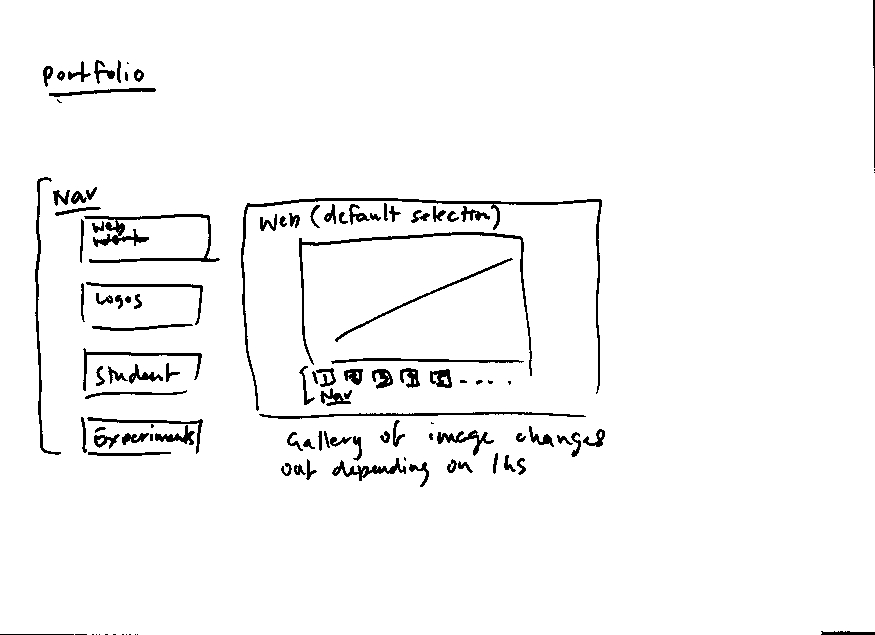 Portfolio
Nav
Web
Logos
Student
Experiments
Web (default selection)
1 2 3 4 5 - - - .
Nav
Gallery of image changes
out depending on lhs